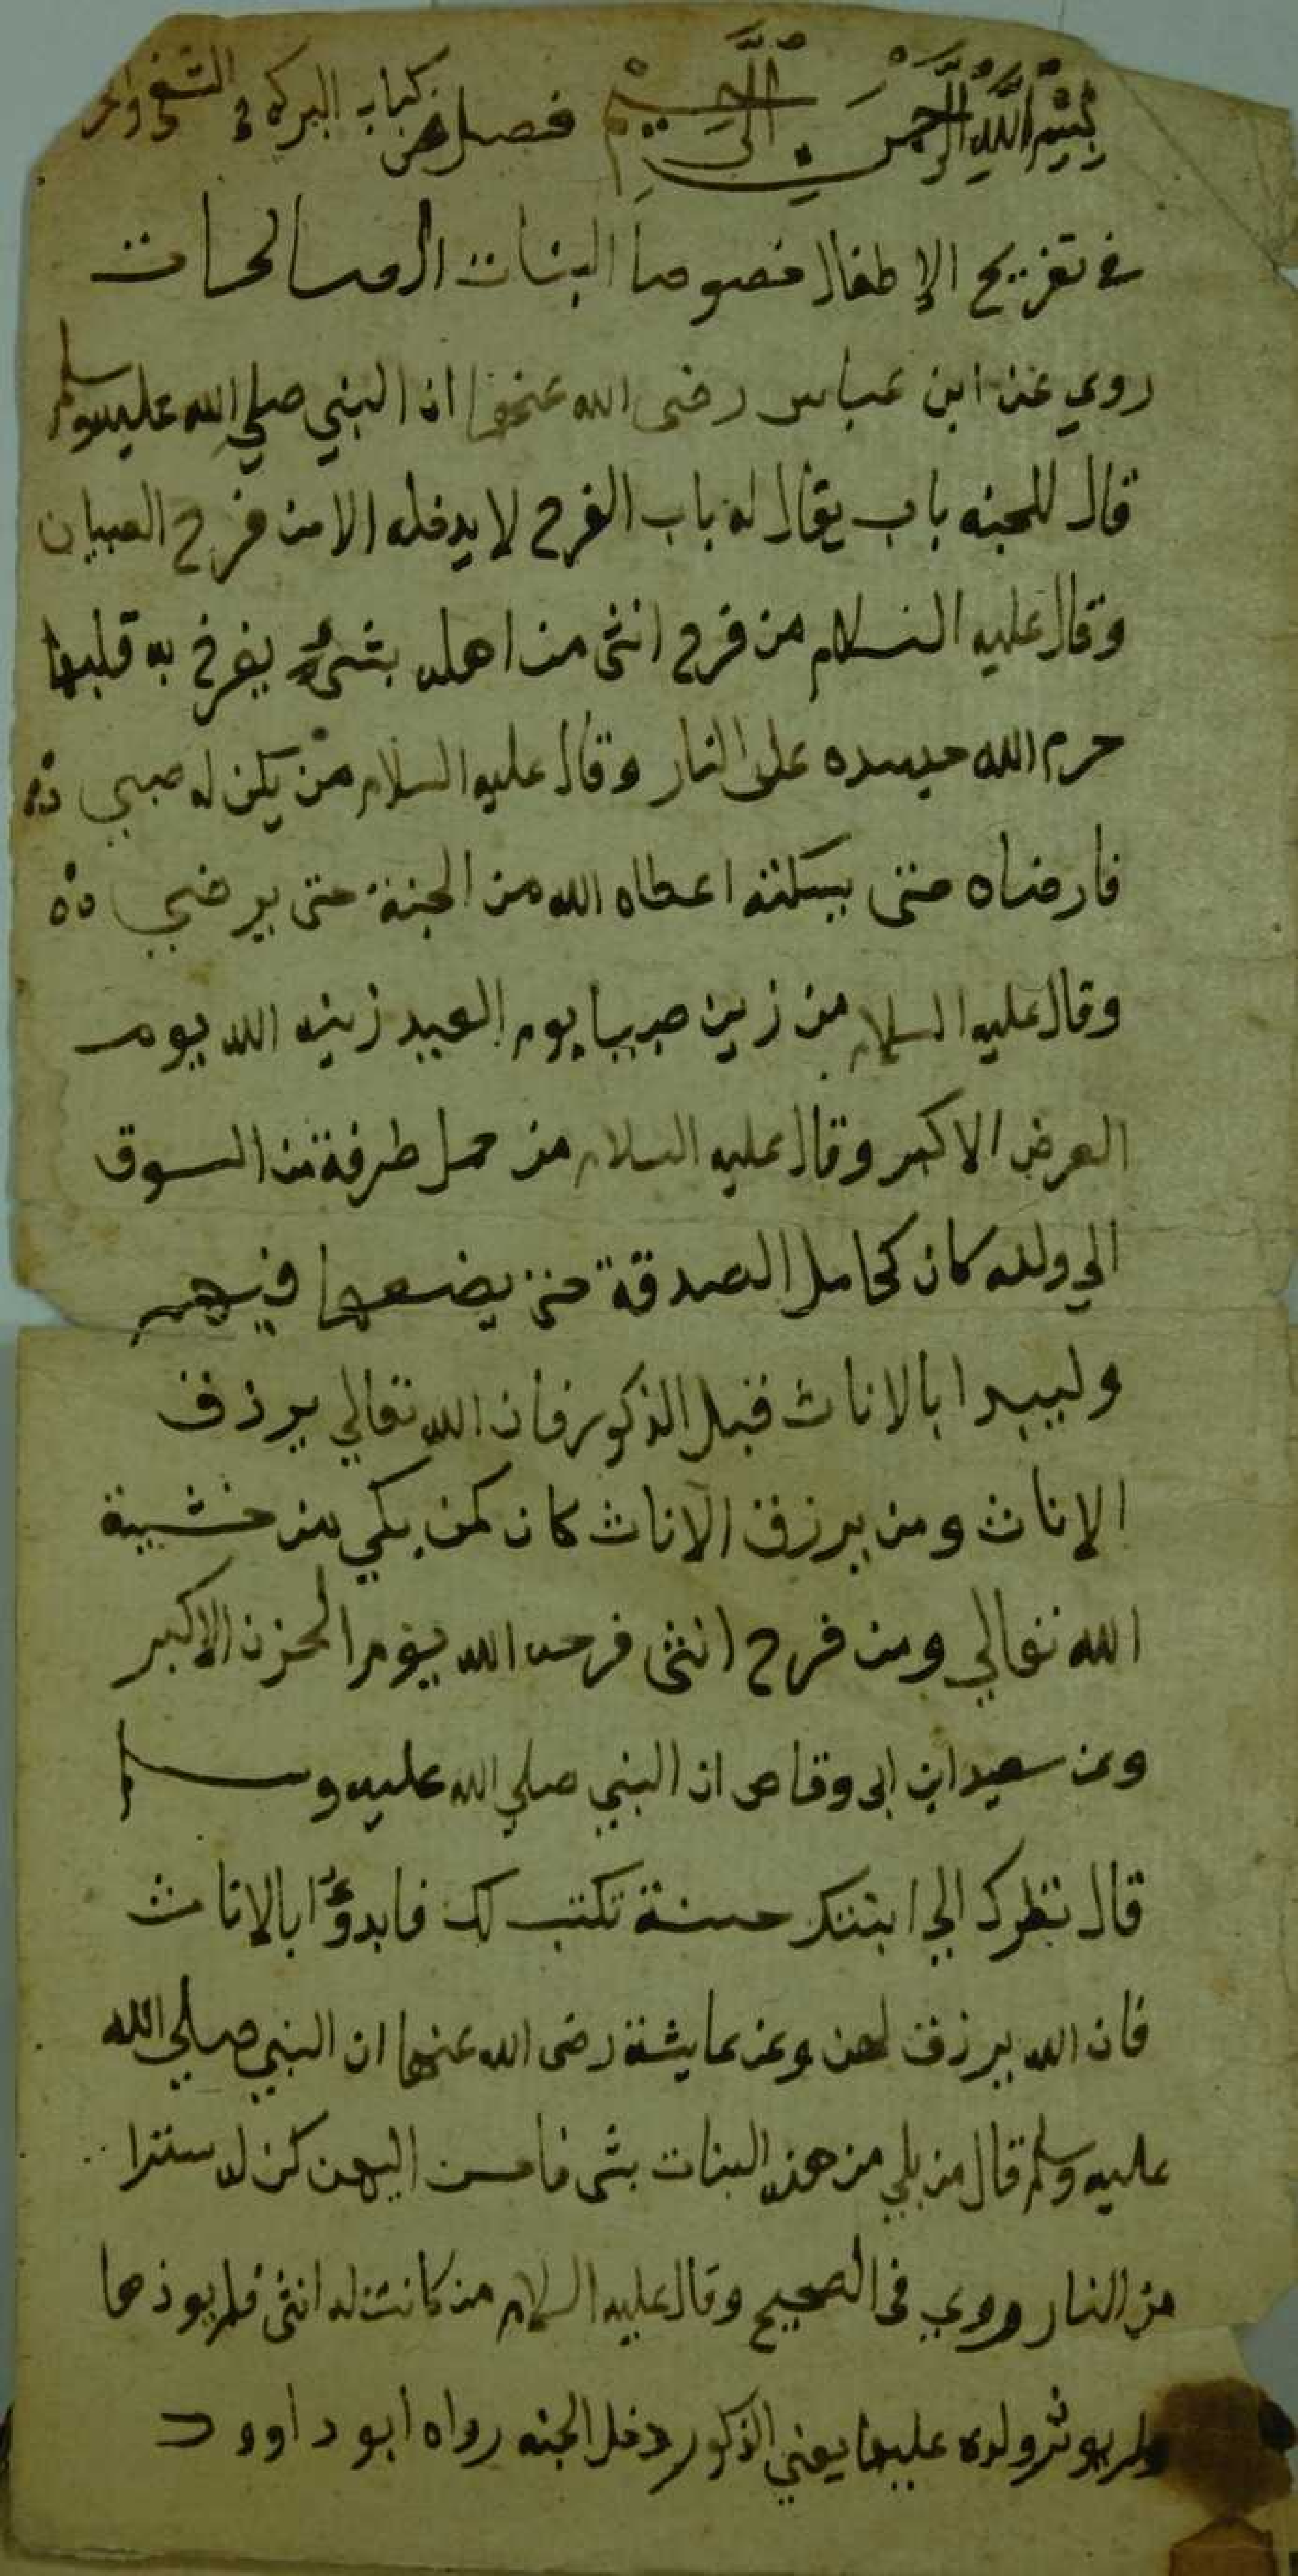 بسم الله الرحمن الرحيم فصل من كتاب البركه في السعي والحر
في تفريح الاطفال خصوصا البنات الصالحات
روي عن ابن عباس رضى الله عنهما ان النبي صلي الله عليه وسلم
قال للجنه باب يقال له باب الفرح لا يدخله الا من فرح الصبيان
وقال عليه السلام من فرح انثى من اهله بشئ يفرح به قلبها
حرم الله جسده على النار وقال عليه السلام من يكن له صبي
فارضاه حتى يسكته اعطاه الله من الجنة حتى يرضي
وقال عليه السلام من زين صبيا يوم العيد زينه الله يوم
العرض الاكبر وقال عليه السلام من حمل طرفة من السوق
الي ولده كان كحامل الصدقة حتى يضعها فيهم
وليبدا بالاناث قبل الذكور فان الله تعالي يرزق
الاناث ومن يرزق الاناث كان كمن بكي من خشية
الله تعالي ومن فرح انثى فرحه الله يوم الحزن الاكبر
وعن سعيد ابن ابى وقاص ان النبي صلي الله عليه وسلم
قال نظرك الي ابنتك حسنة تكتب لك فابدؤا بالاناث
فان الله يرزق لهن وعن عايشة رضى الله عنها ان النبي صلي الله
عليه وسلم قال من بلي من هذه البنات بشى فاحسن اليهن كن له سترا
من النار وروي فى الصحيح وقال عليه السلام من كانت له انثى فلم يوذها
ولم يوثر ولده عليها يعني الذكور دخل الجنه رواه ابو داوود